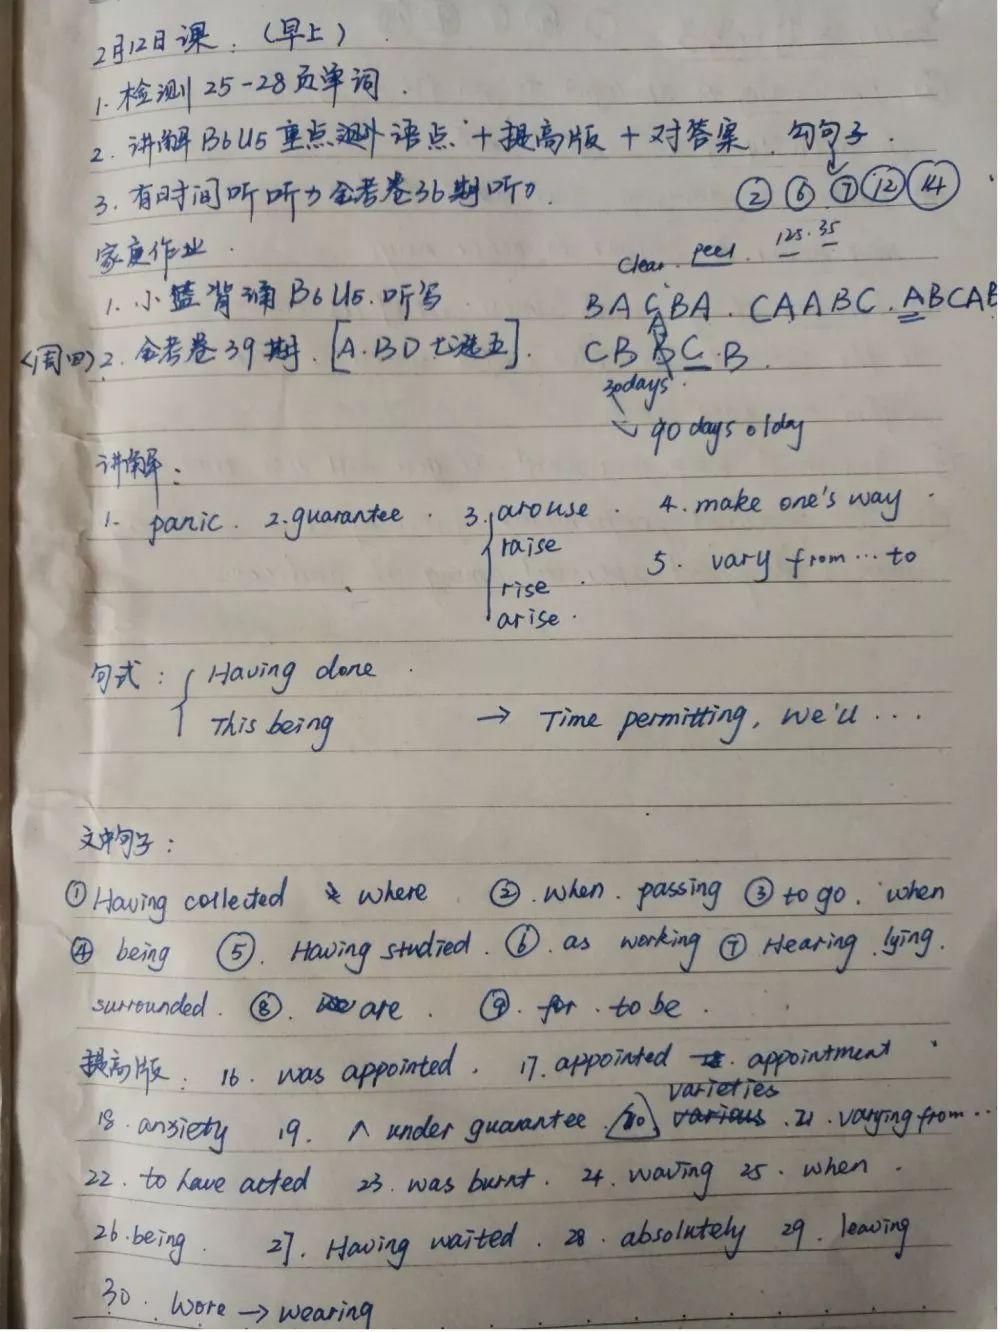 2月12日课：（早上）
1. 检测25-28页单词.
2. 讲解B6U5重点课外语点+提高版+对答案. 勾句子.
3. 有时间听听力金考卷36期听力. ② ⑥ ⑦ ⑫ ⑭
家庭作业.
clear. peel. 125. 35
1. 小篮背诵B6U5.听写 BACBA. CAABC. ABCAB
A
(周四) 2. 金考卷39期. [A.BD七选五]. CBBC.B.
30days.
90 days olday
讲解：
1. panic. 2. guarantee. 3. arouse. 4. make one's way.
raise
5. vary from...to
rise
arise.
句式： Having done.
This being → Time permitting, we'll ...
文中句子：
① Having collected where ② when. passing ③ to go. when
④ being ⑤. Having studied. ⑥. as working ⑦ Hearing. lying.
surrounded. ⑧. are. ⑨. for. to be.
提高版： 16. was appointed. 17. appointed. appointment
varieties
18. anxiety 19. ^ under guarantee. 20 various. 21. varying from...
22. to have acted 23. was burnt. 24. waving 25. when.
26. being. 27. Having waited. 28. absolutely 29. leaving
30. wore → wearing